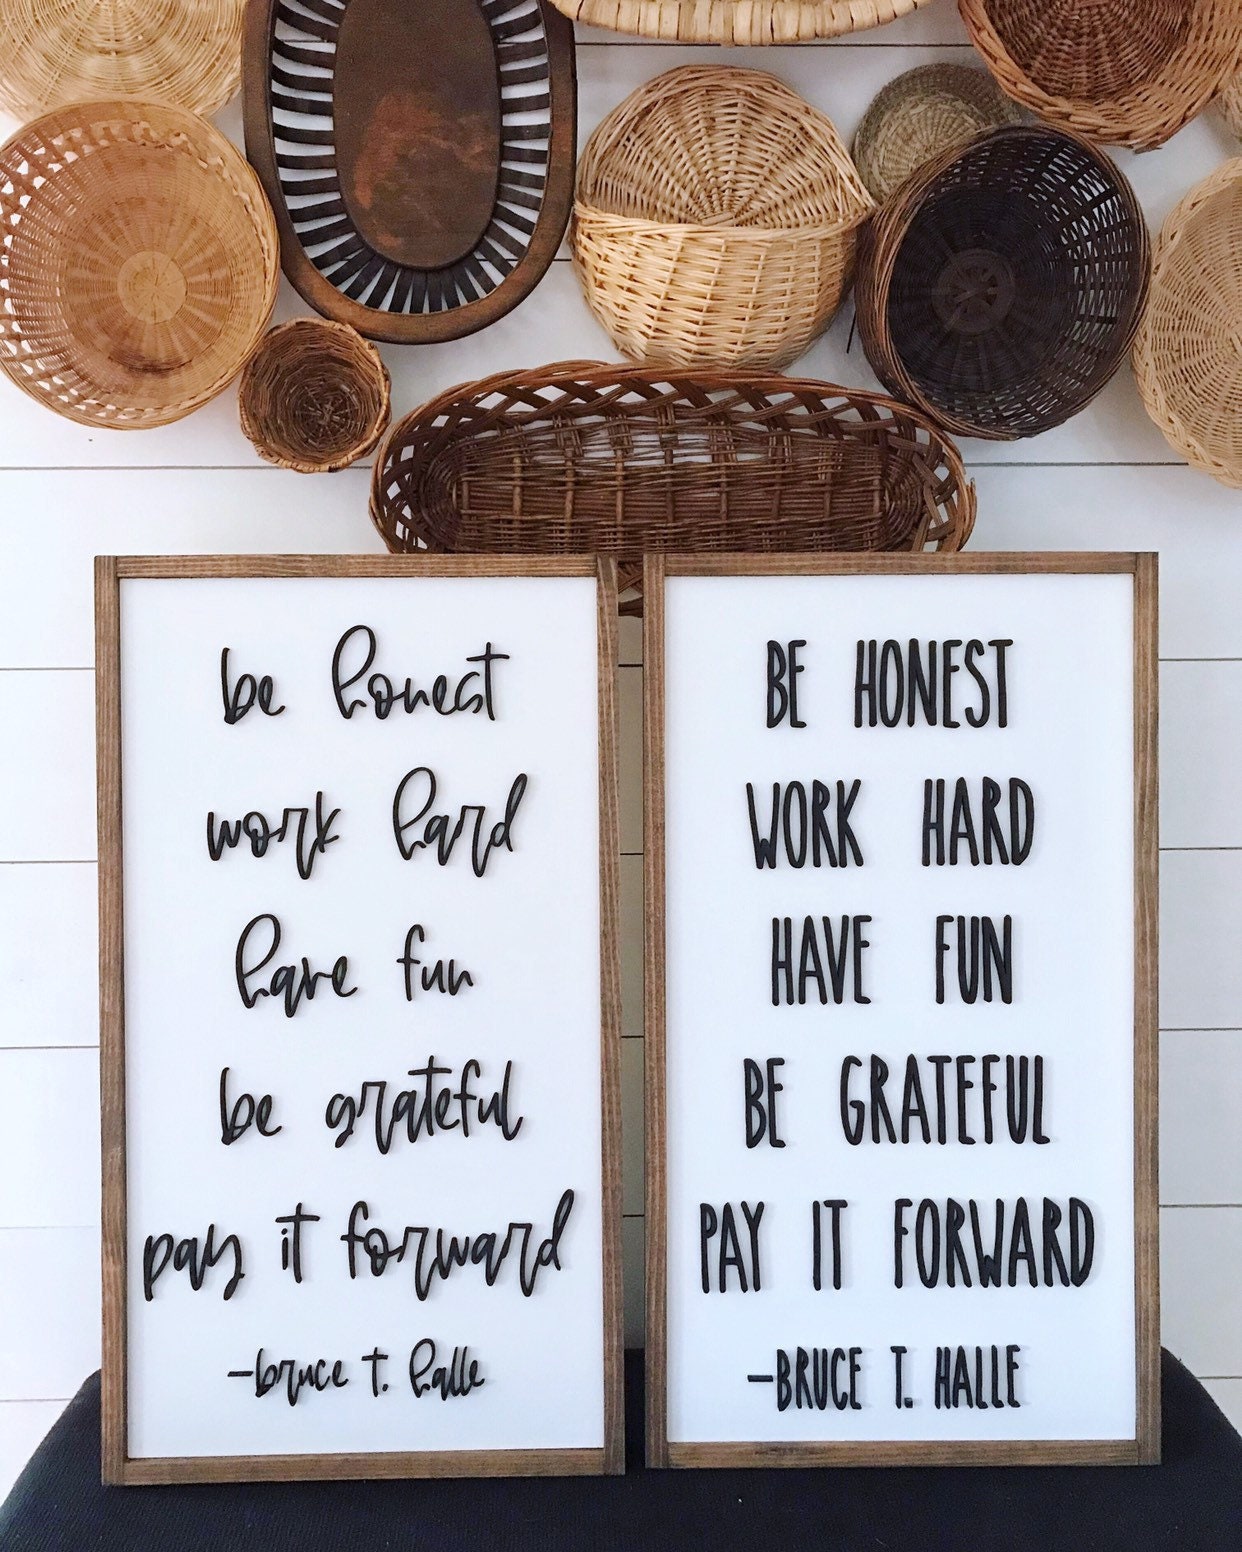 be honest
work hard
have fun
be grateful
pay it forward
-bruce t. halle
BE HONEST
WORK HARD
HAVE FUN
BE GRATEFUL
PAY IT FORWARD
-BRUCE T. HALLE